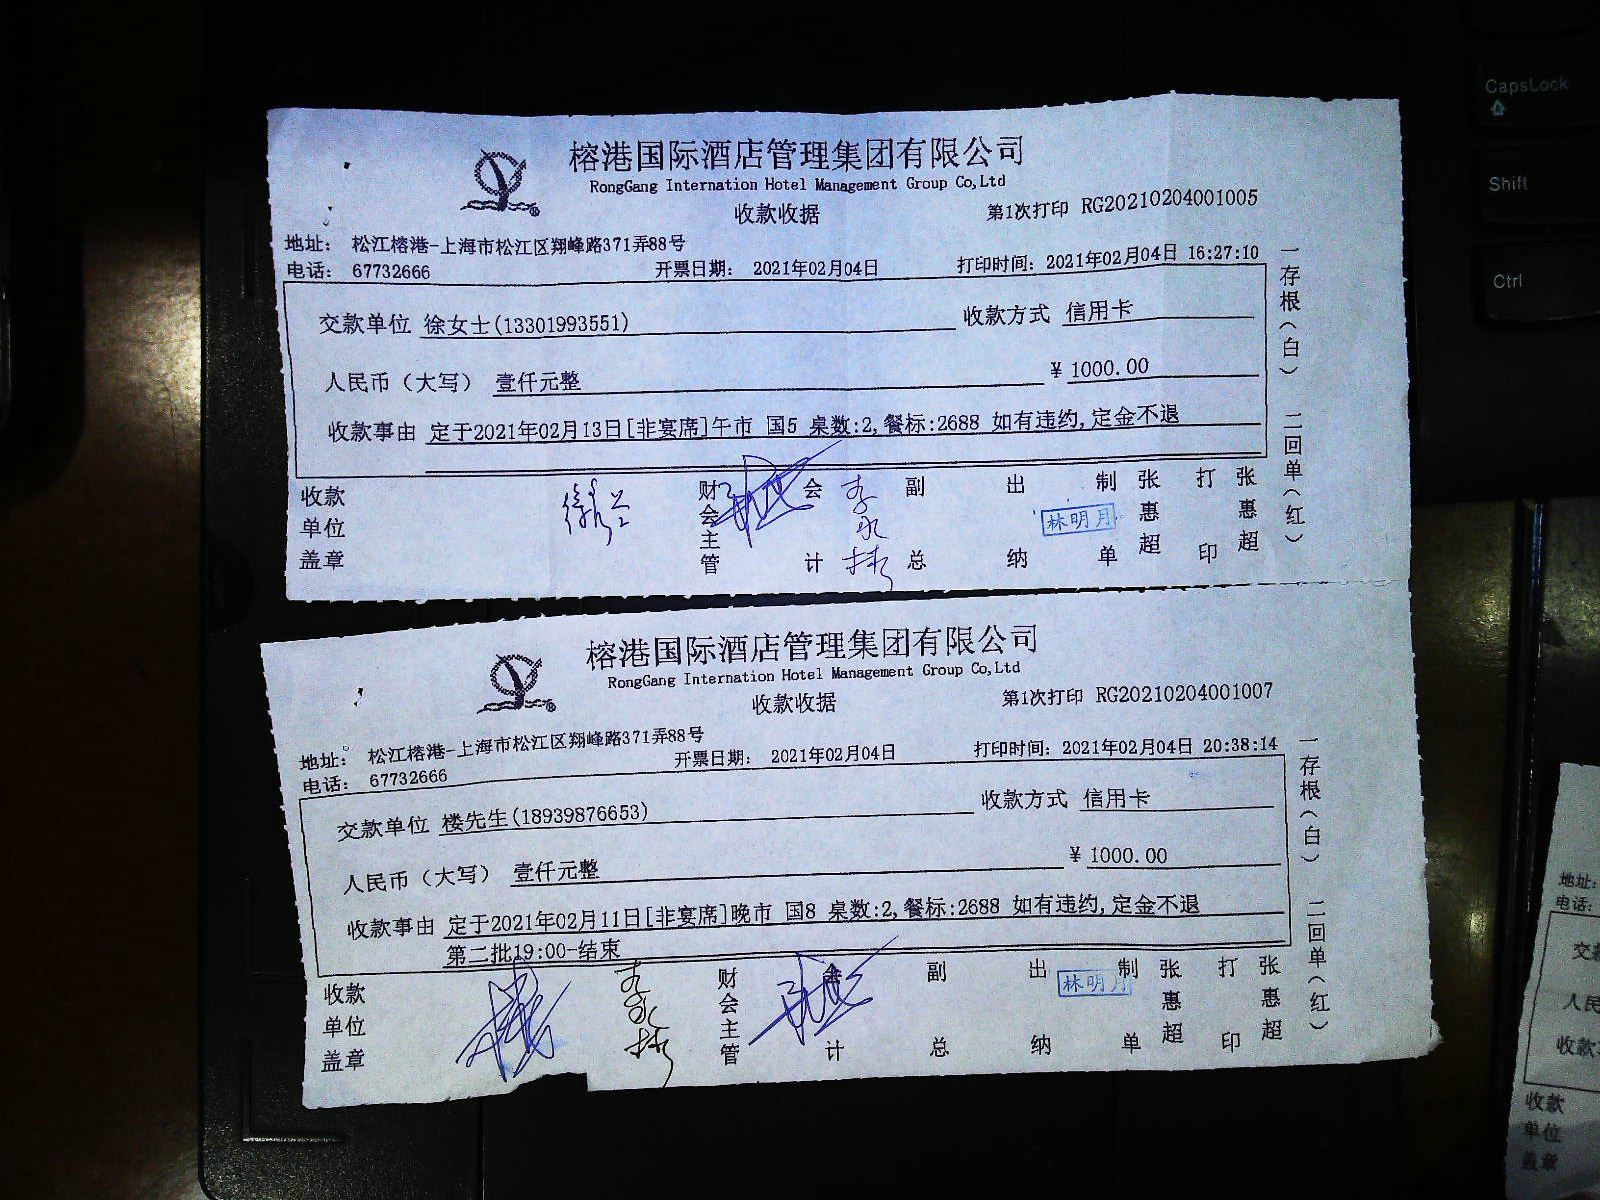 榕港国际酒店管理集团有限公司
RongGang Internation Hotel Management Group Co,Ltd
收款收据
第1次打印 RG20210204001005
地址： 松江榕港-上海市松江区翔峰路371弄88号
电话： 67732666 开票日期： 2021年02月04日 打印时间：2021年02月04日 16:27:10
交款单位 徐女士(13301993551) 收款方式 信用卡
人民币（大写） 壹仟元整 ¥ 1000.00
收款事由 定于2021年02月13日[非宴席]午市 国5 桌数:2,餐标:2688 如有违约,定金不退
收款单位盖章 财会主管 会计 李永 副总 出纳 林明月 制单 张惠超 打印 张惠超
一存根（白） 二回单（红）
榕港国际酒店管理集团有限公司
RongGang Internation Hotel Management Group Co,Ltd
收款收据
第1次打印 RG20210204001007
地址： 松江榕港-上海市松江区翔峰路371弄88号
电话： 67732666 开票日期： 2021年02月04日 打印时间：2021年02月04日 20:38:14
交款单位 楼先生(18939876653) 收款方式 信用卡
人民币（大写） 壹仟元整 ¥ 1000.00
收款事由 定于2021年02月11日[非宴席]晚市 国8 桌数:2,餐标:2688 如有违约,定金不退
第二批19:00-结束
收款单位盖章 李永 财会主管 会计 副总 出纳 林明月 制单 张惠超 打印 张惠超
一存根（白） 二回单（红）
CapsLock
Shift
Ctrl
地址:
电话:
交
人民
收款
收款
单位
盖章